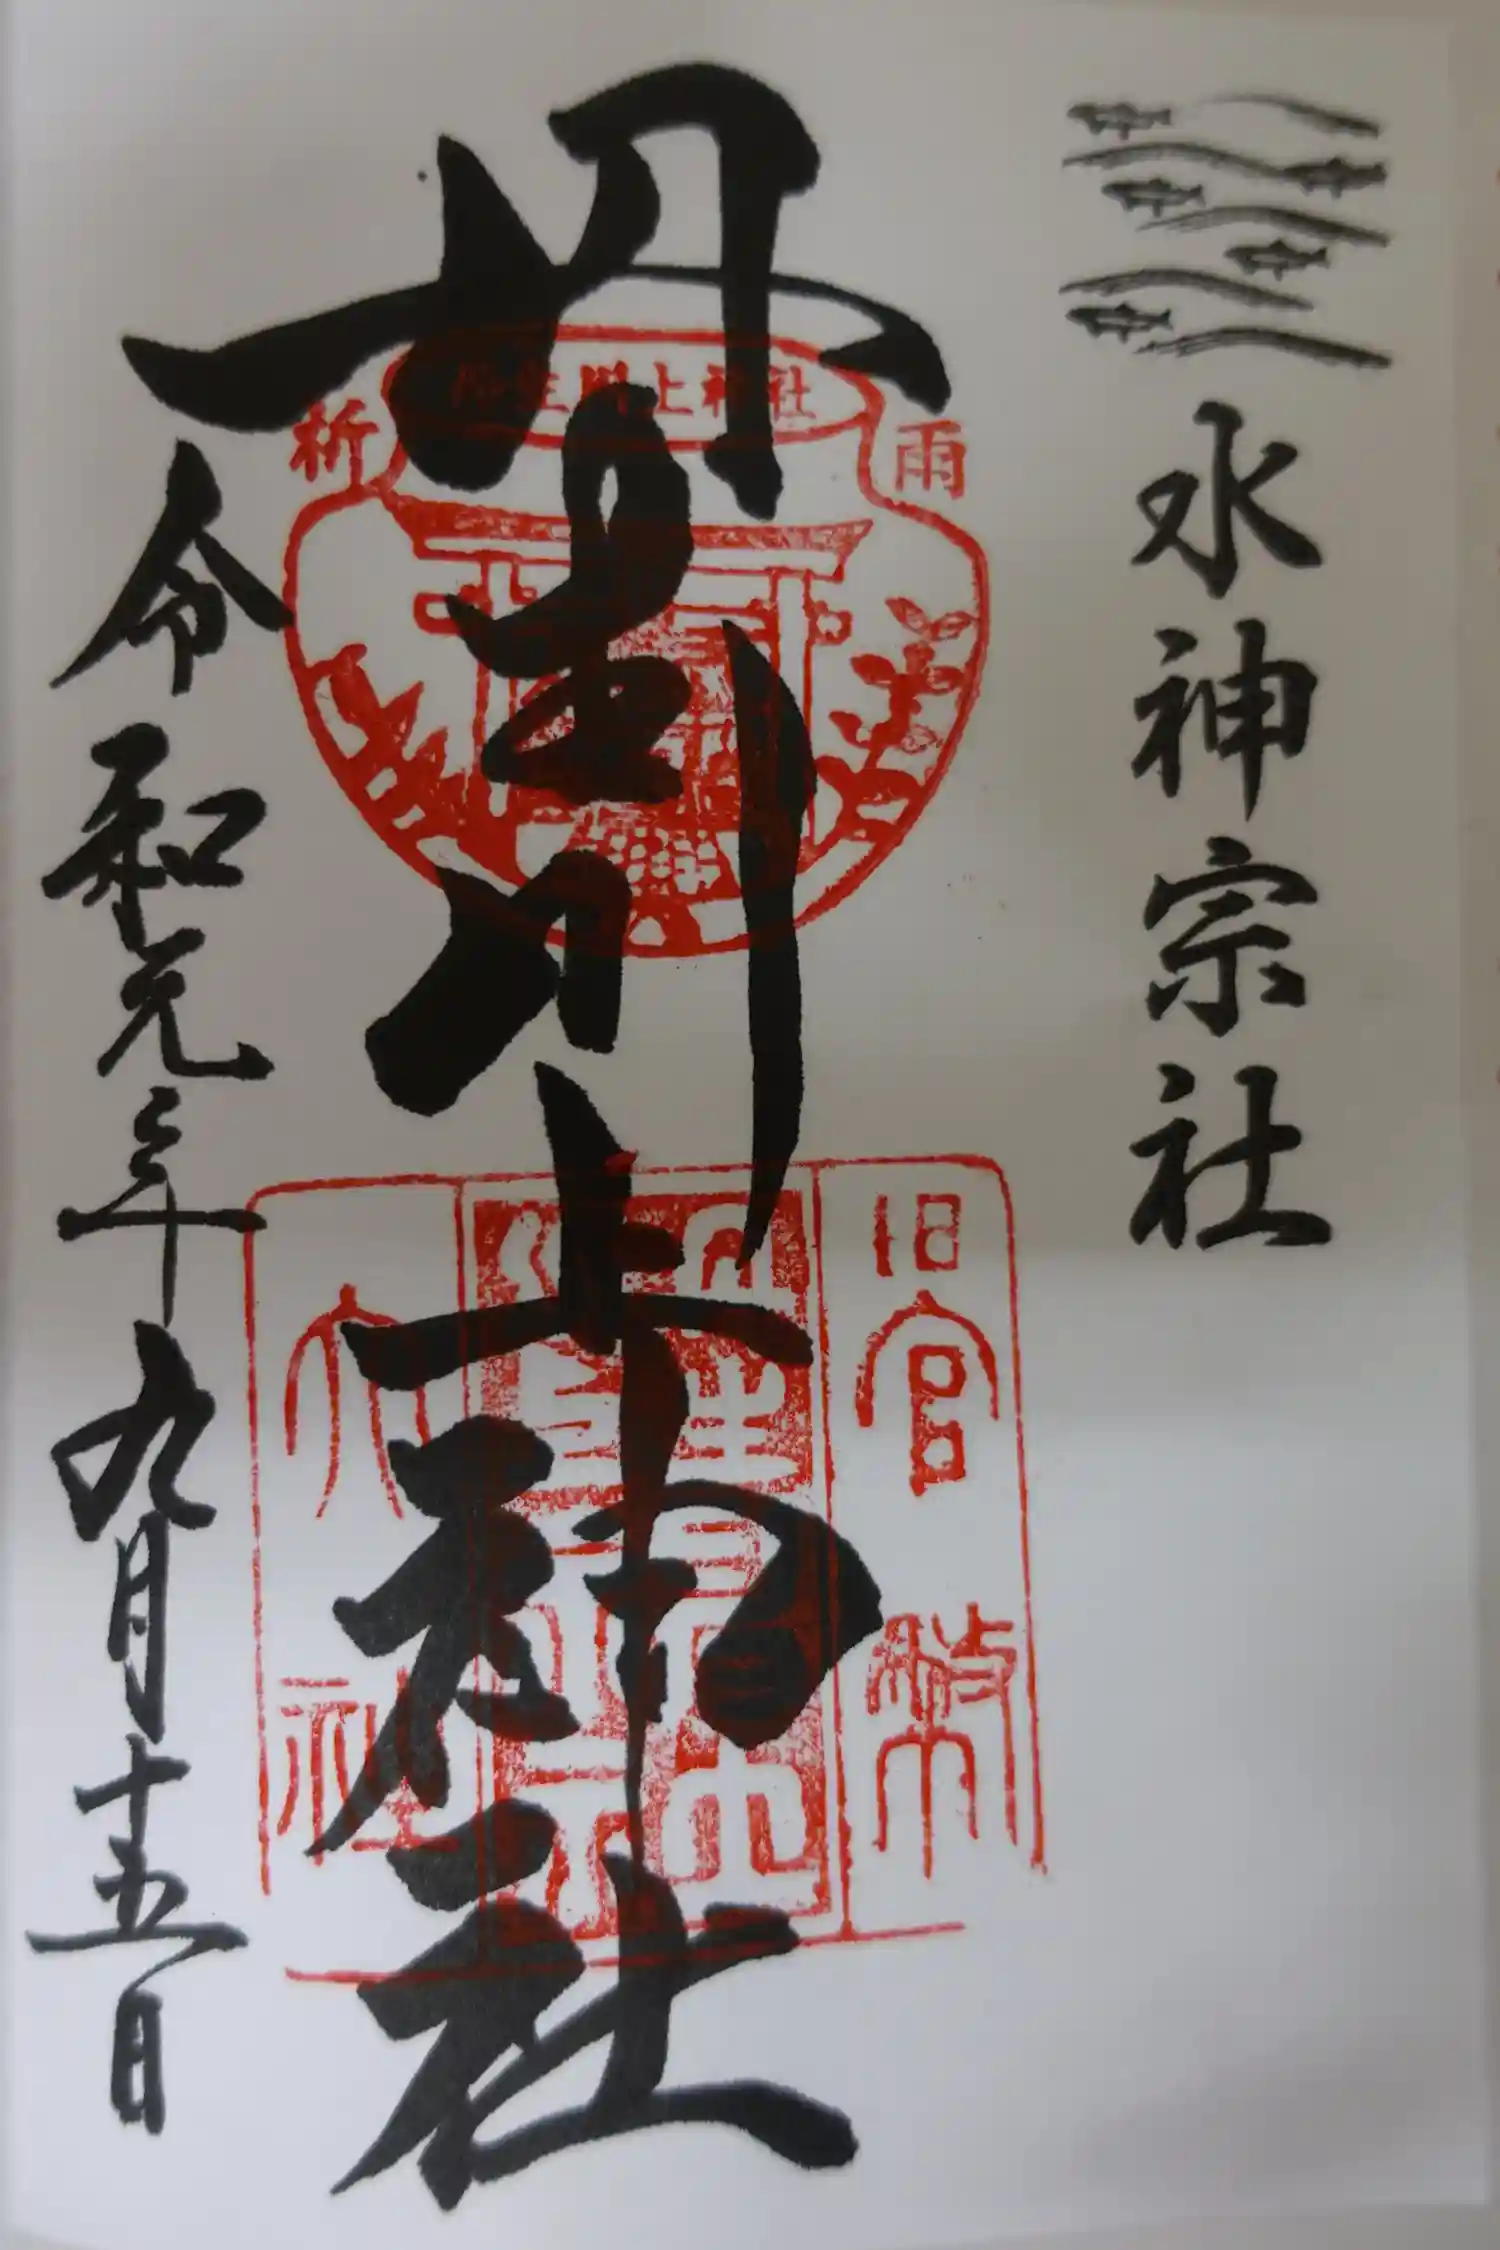 水神宗社
丹生川上神社
令和元年九月十五日
丹生川上神社
祈
雨
旧官幣
大社